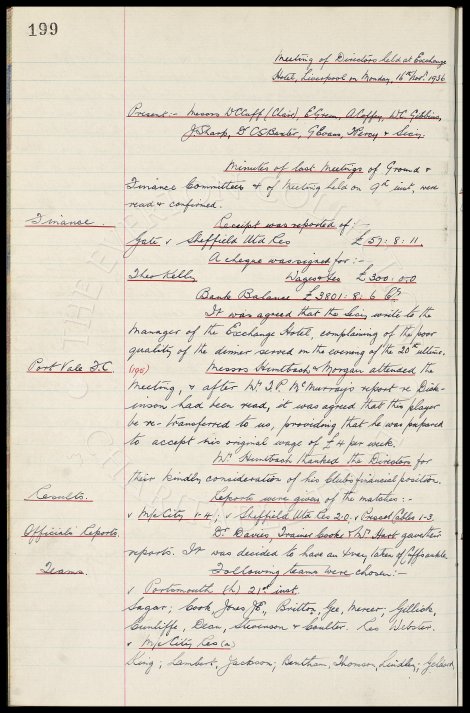 199
Meeting of Directors held at Exchange
Hotel, Liverpool on Monday, 16th Novr. 1936
Present:- Messrs W C Cuff (Chair), E Green, A Coffey, W C Gibbins,
J Sharp, Dr C S Baxter, G Evans, & Secy.
Minutes of last Meetings of Ground &
Finance Committees & of Meeting held on 9th inst, were
read & confirmed.
Finance. Receipt was reported of:-
Gate v Sheffield Utd Res £57:8:11
A cheque was signed for:-
Theo Kelly Wages & es £300:0:0
Bank Balance £3801:8:6 Cr
It was agreed that the Secy write to the
Manager of the Exchange Hotel, complaining of the poor
quality of the dinner served on the evening of the 28th ultimo.
Port Vale F.C. (195) Messrs Huntbach & Morgan attended the
Meeting, & after Mr J.P. McMurray's report re Dick-
inson had been read, it was agreed that this player
be re-transferred to us, providing that he was prepared
to accept his original wage of £4 per week.
Mr Huntbach thanked the Directors for
their kindly consideration of his Club's financial position.
Results. Reports were given of the matches:-
v M/c City 1-4; v Sheffield Utd Res 2-0. v Prescot Cables 1-3.
Officials Reports. Dr Davies, Trainer Cooke & Mr Hart gave their
reports. It was decided to have an Xray taken of Cuff's ankle.
Teams. Following teams were chosen:-
v Portsmouth (h) 21st inst.
Sagar; Cook, Jones J.E., Britton, Gee, Mercer, Gillick,
Cunliffe, Dean, Stevenson & Coulter. Res Webster.
v M/c City Res (a)
King; Lambert, Jackson; Bentham, Thomson, Lindley;